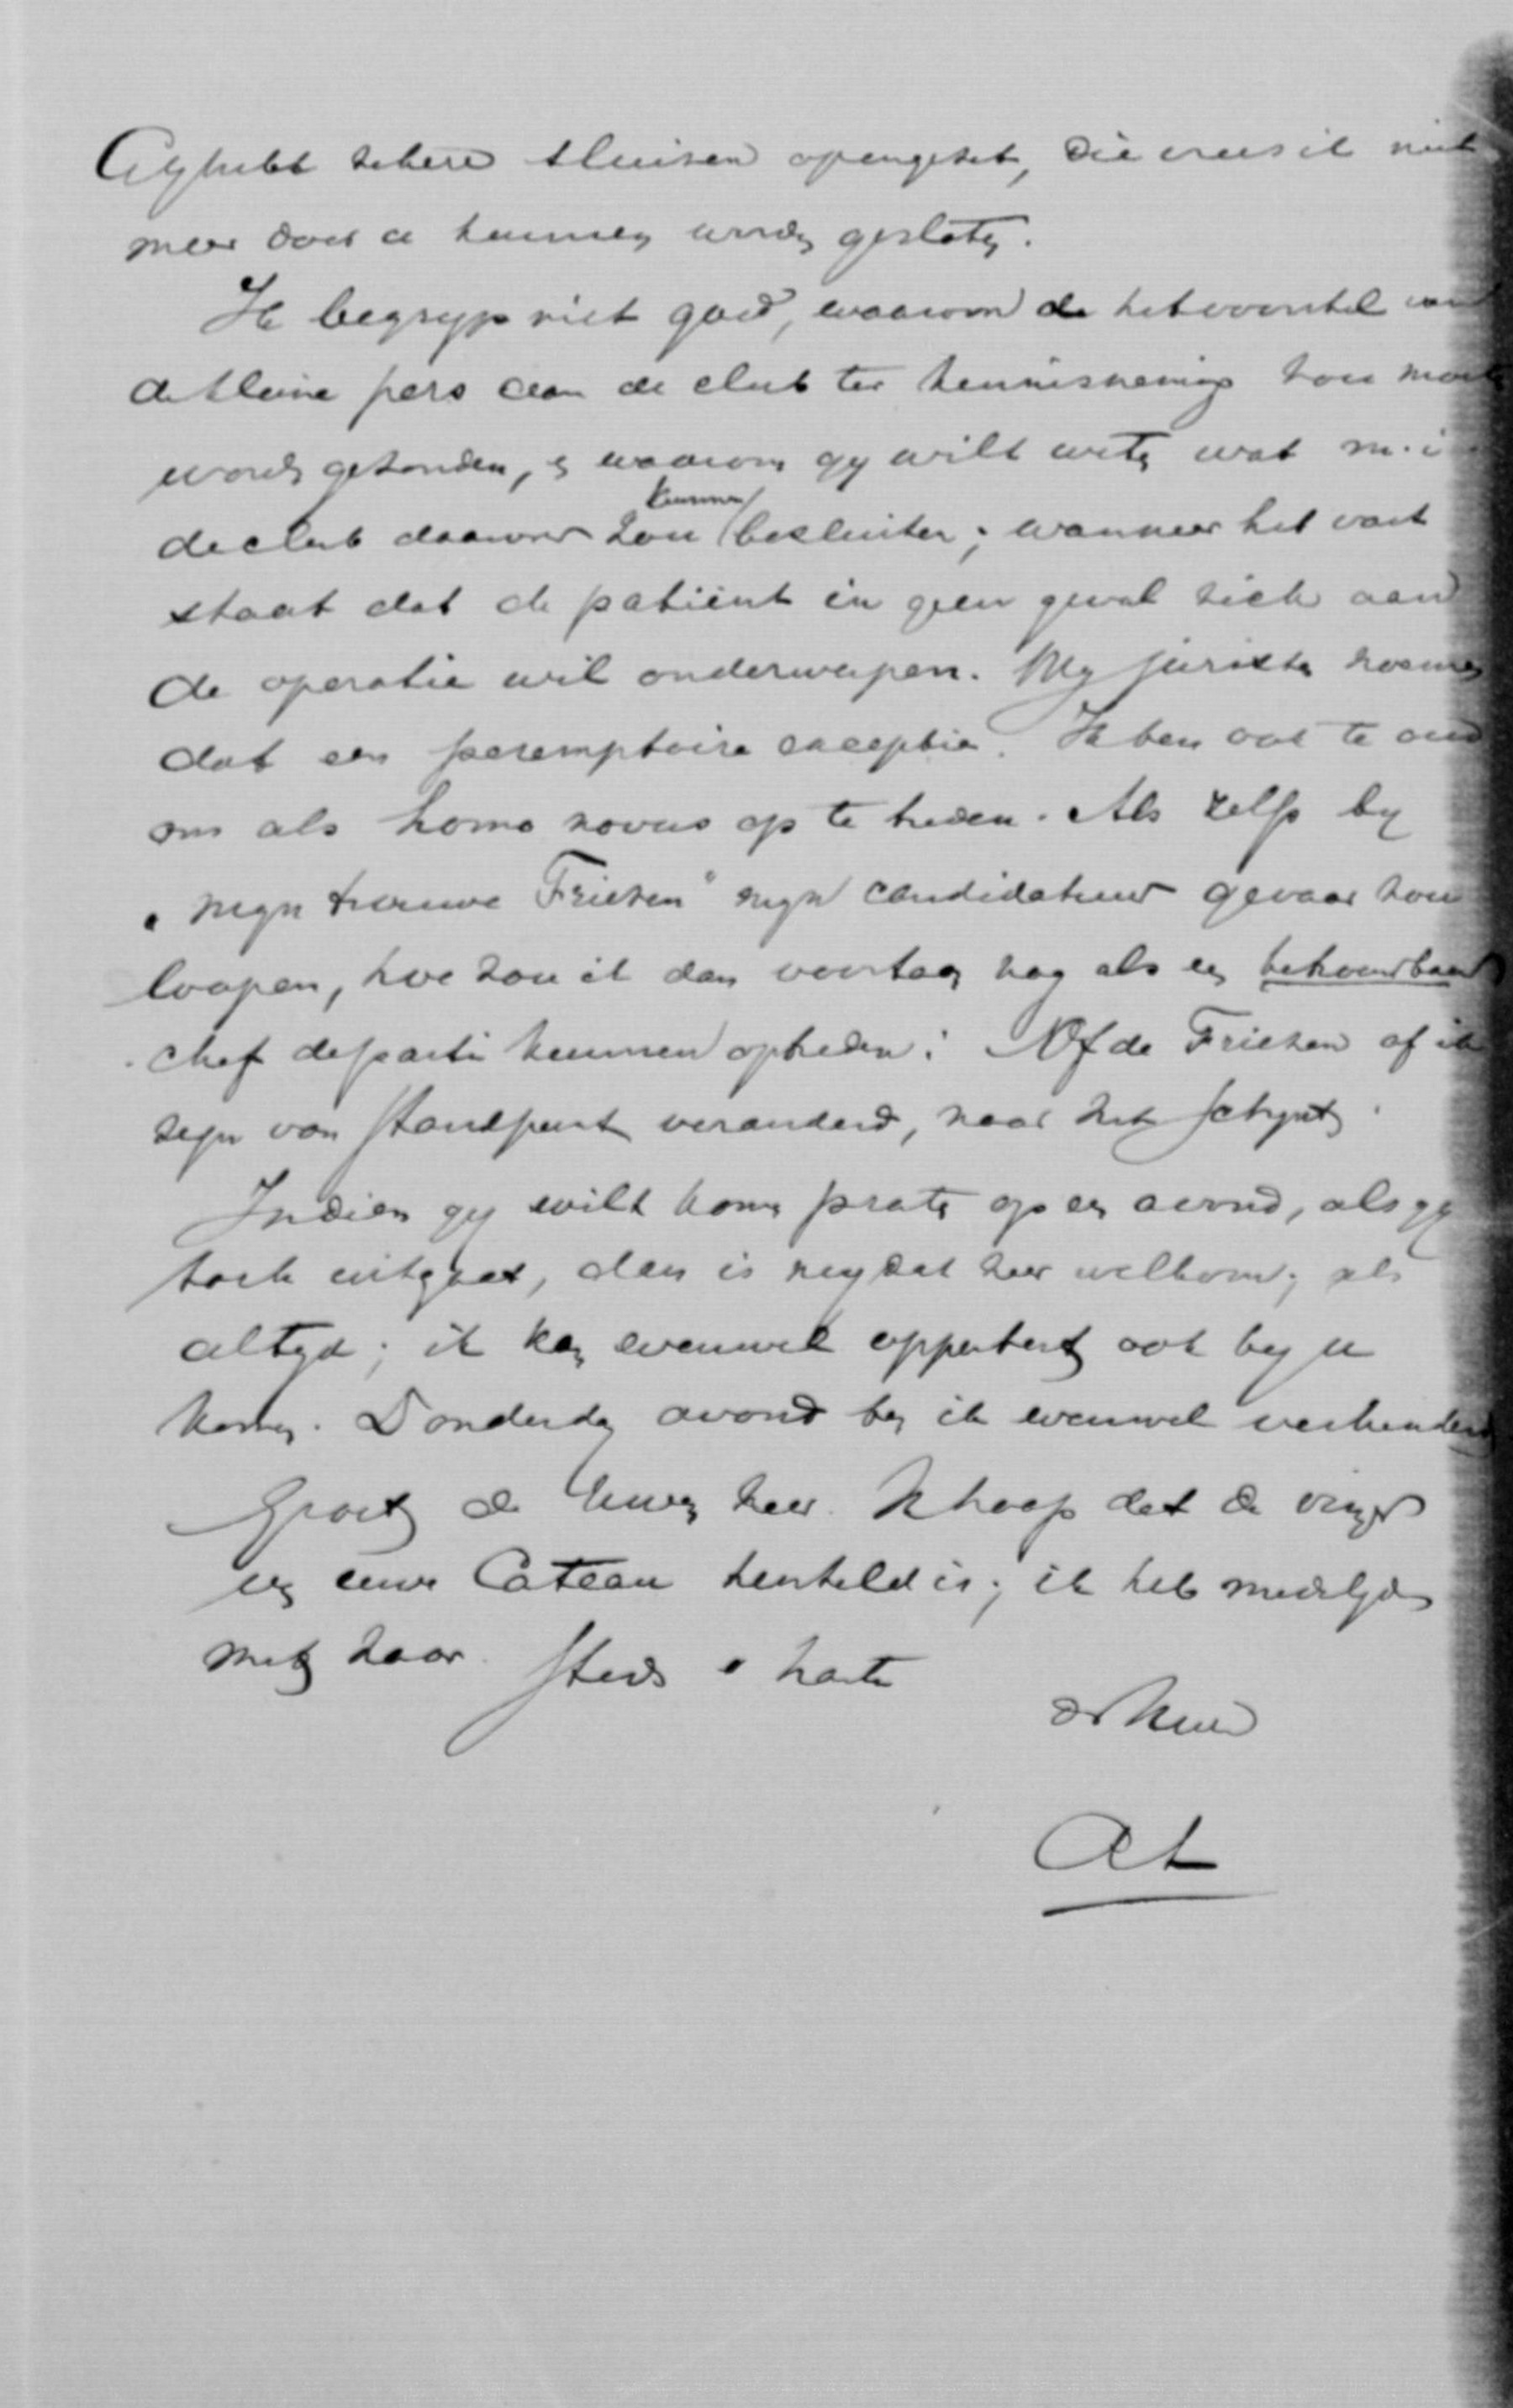 Gij hebt zekere sluisen opengezet, die vrees ik niet
meer door u kunnen worden gesloten.
Ik begryp niet goed, waarom de het voorstel van
de kleine pers aan de club ter kennisneming zou moeten
worden gezonden, en waarom gy wilt weten wat m.i.
de club daarover zou kunnen besluiten; wanneer het vast
staat dat de patiënt in geen geval zich aan
de operatie wil onderwerpen. Wy juristen noemen
dat een peremptoire exceptie. Ik ben ook te oud
om als homo novus op te treden. Als zelfs by
"myn trouwe Friezen" myn candidatuur gevaar zou
loopen, hoe zou ik dan voortaan nog als een betrouwbaar
chef de parti kunnen optreden? Of de Friezen of ik
zyn van standpunt veranderd, naar het schynt.
Indien gy wilt komen praten op een avond, als gy
toch uitgaat, dan is my dat zeer welkom, als
altyd; ik kan evenwel opperbest ook by u
komen. Donderdag avond ben ik evenwel verhinderd
Groet de Uwen zeer. Ik hoop dat de vinger
van Cateau hersteld is; ik heb medelyden
met haar. Steeds harte
de Uwe